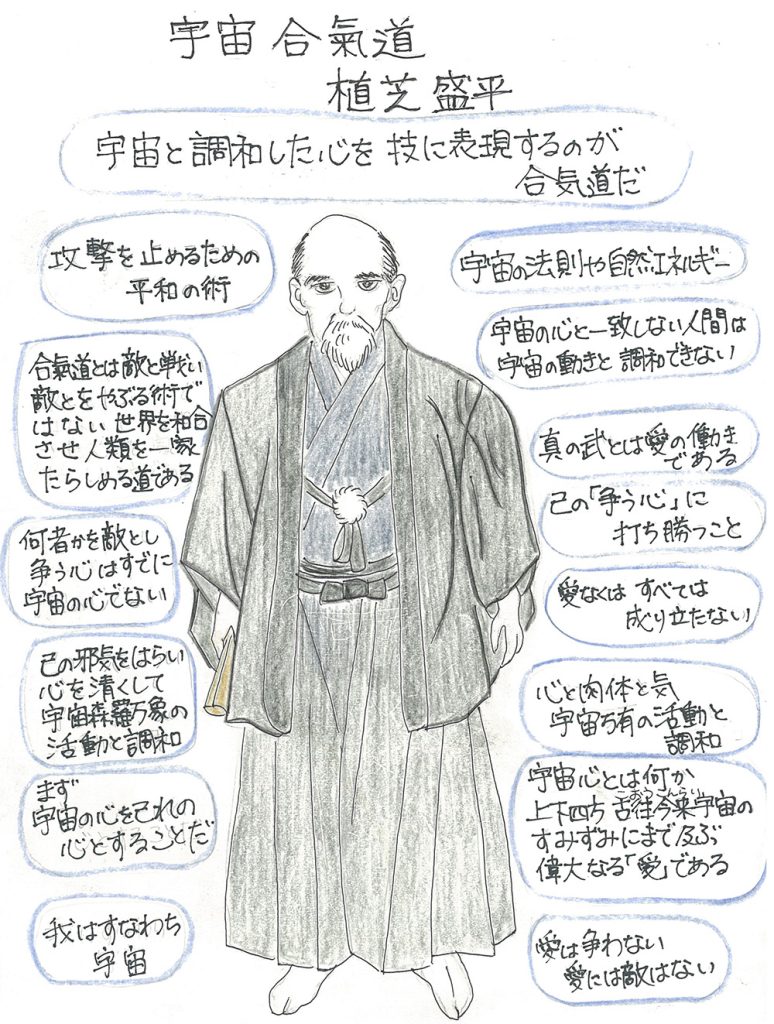 宇宙 合氣道
植芝 盛平
宇宙と調和した心を 技に表現するのが
合気道だ
攻撃を止めるための
平和の術
合氣道とは敵と戦い
敵とをやぶる術で
はない 世界を和合
させ人類を一家
たらしめる道である
何者かを敵とし
争う心はすでに
宇宙の心でない
己の邪気をはらい
心を清くして
宇宙森羅万象の
活動と調和
まず
宇宙の心を己れの
心とすることだ
我はすなわち
宇宙
宇宙の法則や自然エネルギー
宇宙の心と一致しない人間は
宇宙の動きと調和できない
真の武とは愛の働き
である
己の「争う心」に
打ち勝つこと
愛なくは すべては
成り立たない
心と肉体と気
宇宙万有の活動と
調和
宇宙心とは何か
こおうこんらい
上下四方 古往今来宇宙の
すみずみにまで及ぶ
偉大なる「愛」である
愛は争わない
愛には敵はない